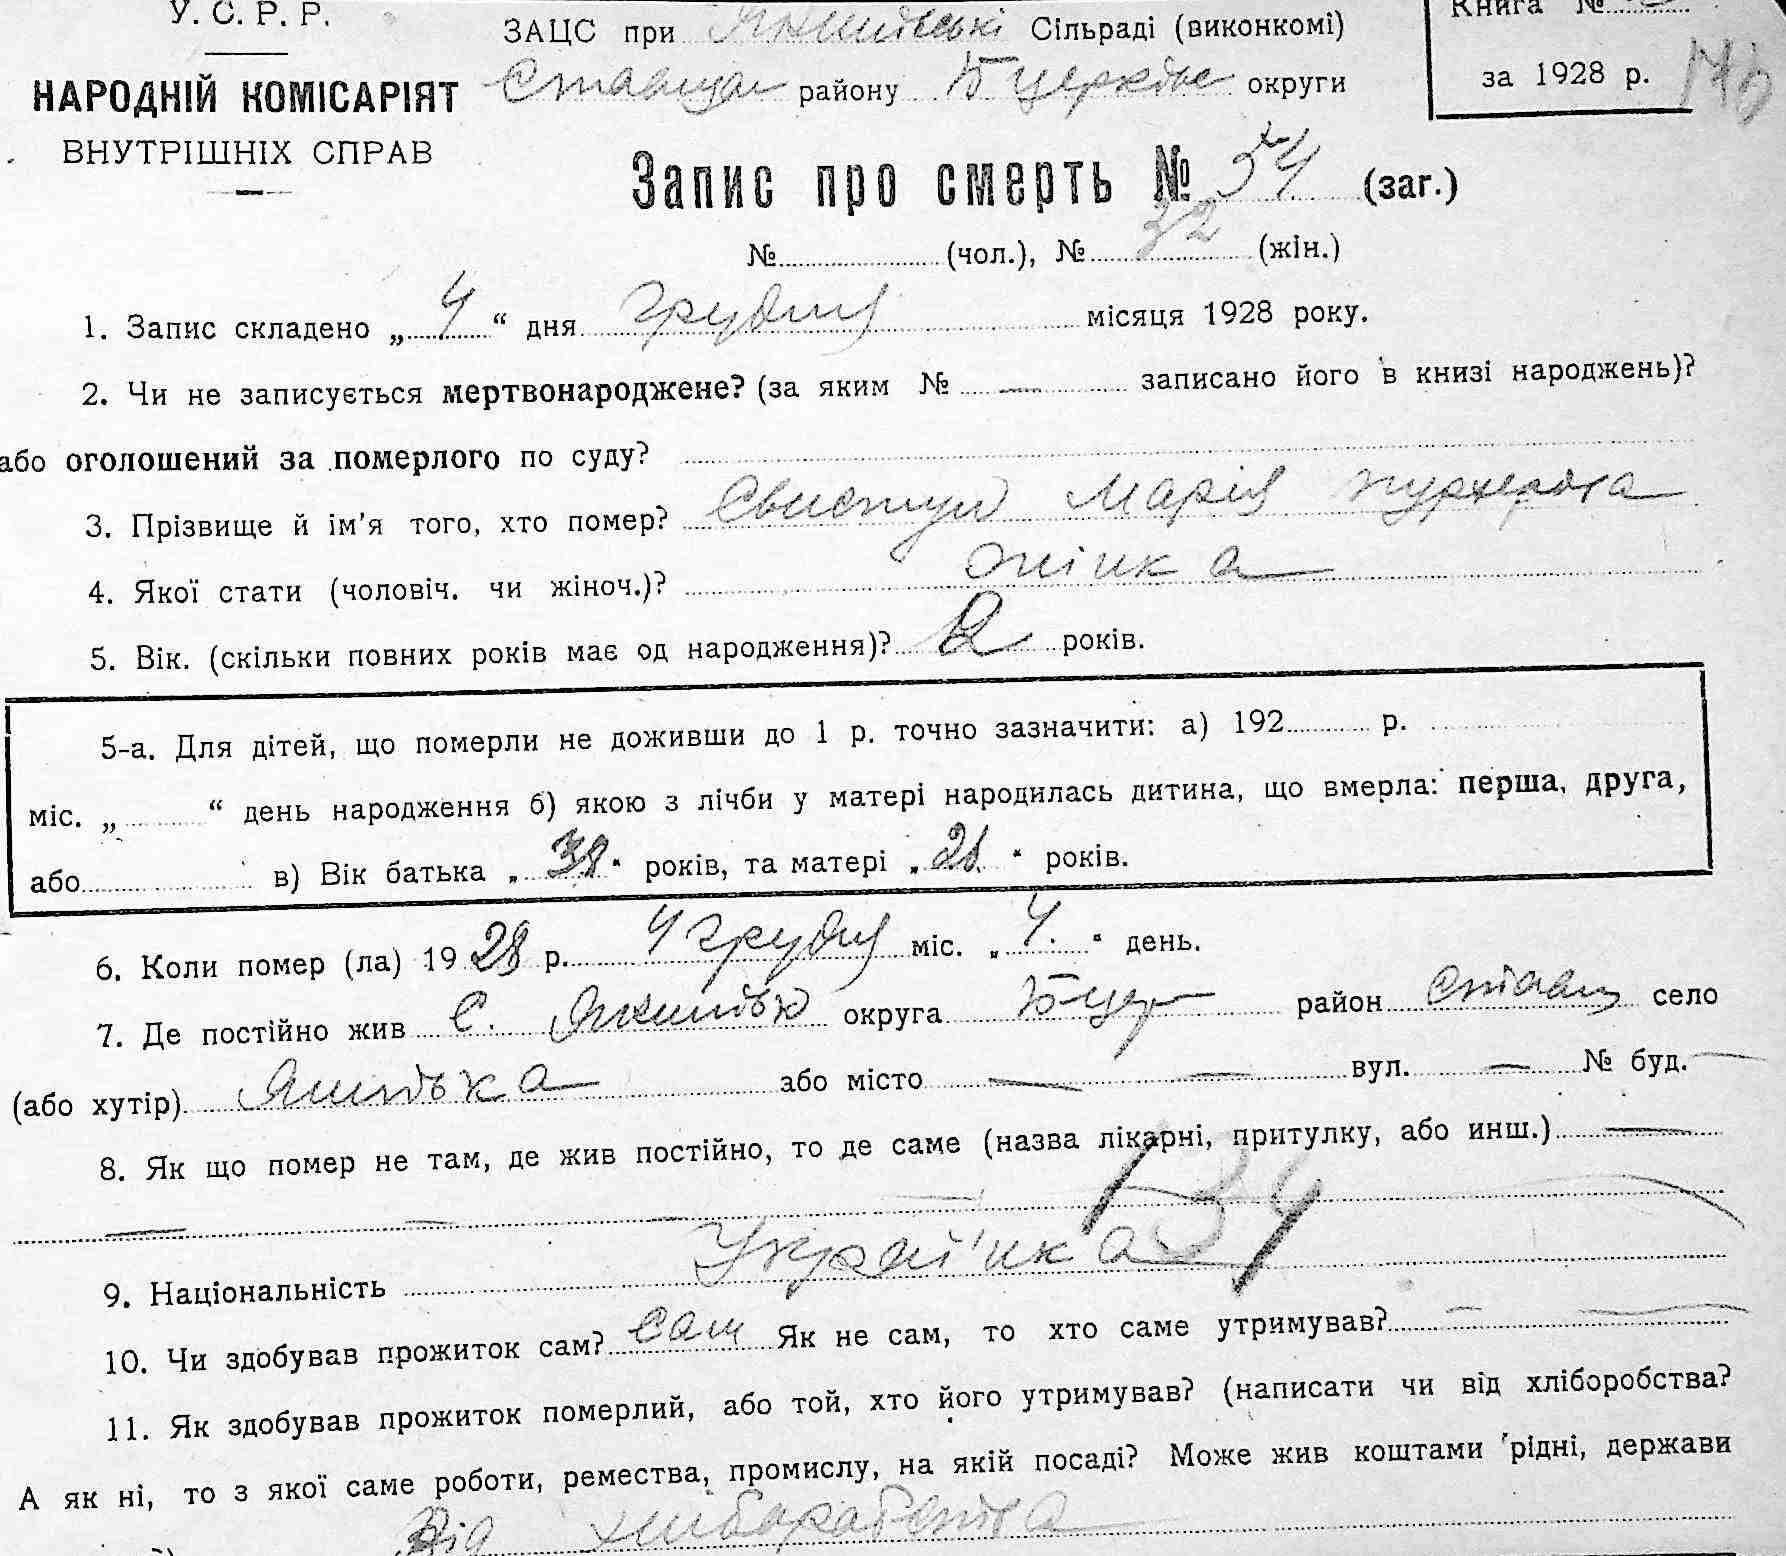 У. С. Р. Р.
НАРОДНІЙ КОМІСАРІЯТ
ВНУТРІШНІХ СПРАВ
ЗАЦС при Сільраді (виконкомі)
Ставищан району Б церківс округи
Книга №
за 1928 р.
Запис про смерть № 54 (заг.)
№ (чол.), № 32 (жін.)
1. Запис складено „ 4 “ дня грудня місяця 1928 року.
2. Чи не записується мертвонароджене? (за яким № — записано його в книзі народжень)?
або оголошений за померлого по суду?
3. Прізвище й ім'я того, хто помер? Свистун Марія
4. Якої стати (чоловіч. чи жіноч.)? жінка
5. Вік. (скільки повних років має од народження)? 2 років.
5-а. Для дітей, що померли не доживши до 1 р. точно зазначити: а) 192 р.
міс. „ “ день народження б) якою з лічби у матері народилась дитина, що вмерла: перша, друга,
або в) Вік батька „ “ років, та матері „ “ років.
6. Коли помер (ла) 1928 р. 4 грудня міс. „ 4. “ день.
7. Де постійно жив с. округа Б-цер район Ставищ село
(або хутір) або місто — — вул. — № буд. —
8. Як що помер не там, де жив постійно, то де саме (назва лікарні, притулку, або инш.) —
134
9. Національність Украї'нка
10. Чи здобував прожиток сам? сам Як не сам, то хто саме утримував? — —
11. Як здобував прожиток померлий, або той, хто його утримував? (написати чи від хліборобства?
А як ні, то з якої саме роботи, ремества, промислу, на якій посаді? Може жив коштами рідні, держави
Від хліборобства